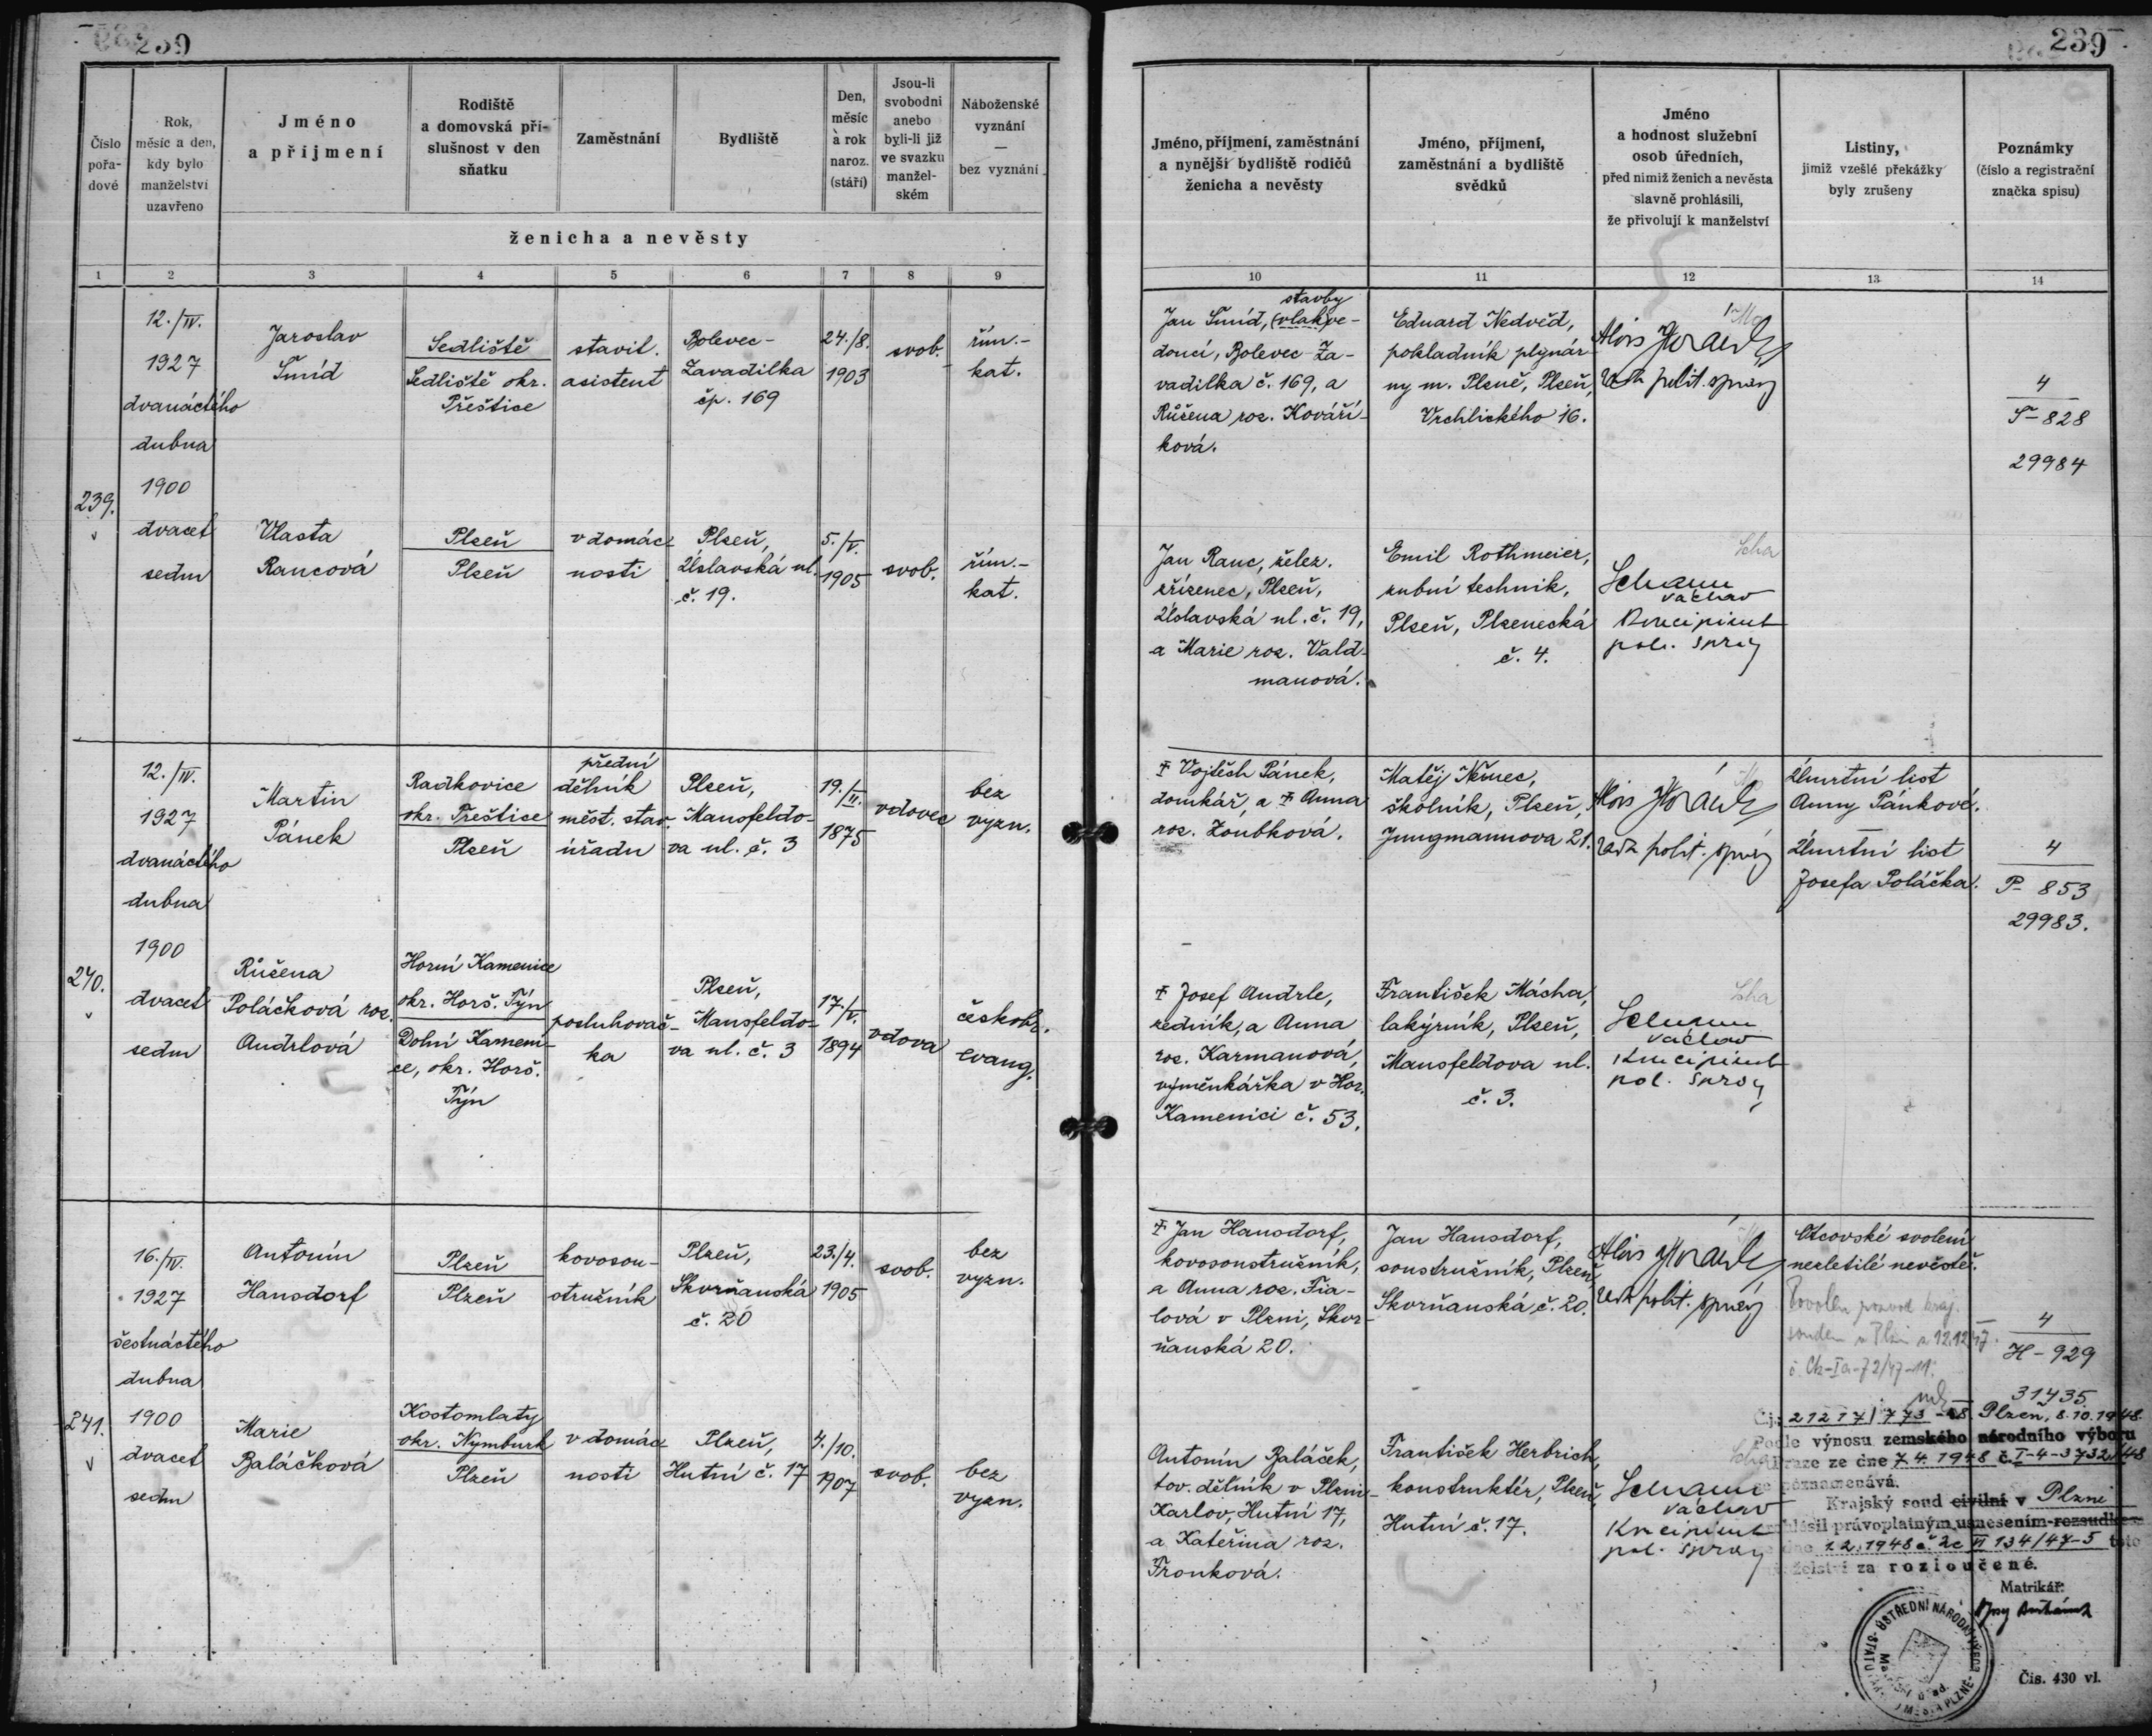 239
239
Číslo pořa- dové
Rok, měsíc a den, kdy bylo manželství uzavřeno
Jméno a příjmení
Rodiště a domovská pří- slušnost v den sňatku
Zaměstnání
Bydliště
Den, měsíc a rok naroz. (stáří)
Jsou-li svobodni anebo byli-li již ve svazku manžel- ském
Náboženské vyznání — bez vyznání
ženicha a nevěsty
1 2 3 4 5 6 7 8 9
Jméno, příjmení, zaměstnání a nynější bydliště rodičů ženicha a nevěsty
Jméno, příjmení, zaměstnání a bydliště svědků
Jméno a hodnost služební osob úředních, před nimiž ženich a nevěsta slavně prohlásili, že přivolují k manželství
Listiny, jimiž vzešlé překážky byly zrušeny
Poznámky (číslo a registrační značka spisu)
10 11 12 13 14
239.
12./IV.
1927
dvanáctého
dubna
1900
dvacet
sedm
Jaroslav
Šmíd
Sedliště
Sedliště okr.
Přeštice
stavit.
asistent
Bolevec-
Zavadilka
čp. 169
24./8.
1903
svob.
řím.-
kat.
Vlasta
Rancová
Plzeň
Plzeň
v domác-
nosti
Plzeň,
Úslavská ul.
č. 19.
5./V.
1905
svob.
řím.-
kat.
stavby
Jan Šmíd, (vlak)ve-
doucí, Bolevec-Za-
vadilka č. 169, a
Růžena roz. Kováří-
ková.
Eduard Nedvěd,
pokladník plynár-
ny m. Plzně, Plzeň,
Vrchlického 16.
Alois
rada polit. správy
4
Š-828
29984
Jan Ranc, želez.
zřízenec, Plzeň,
Úslavská ul. č. 19,
a Marie roz. Vald-
manová.
Emil Rothmeier,
zubní technik,
Plzeň, Plzenecká
č. 4.
Scha
Václav
pol. správy
240.
12./IV.
1927
dvanáctého
dubna
1900
dvacet
sedm
Martin
Pánek
Radkovice
okr. Přeštice
Plzeň
přední
dělník
měst. stav.
úřadu
Plzeň,
Mansfeldo-
va ul. č. 3
19./II.
1875
vdovec
bez
vyzn.
Růžena
Poláčková roz.
Andrlová
Horní Kamenice
okr. Horš. Týn
Dolní Kameni-
ce, okr. Horš.
Týn
posluhovač-
ka
Plzeň,
Mansfeldo-
va ul. č. 3
17./V.
1894
vdova
českobr.
evang.
† Vojtěch Pánek,
domkář, a † Anna
roz. Zoubková.
Matěj Němec,
školník, Plzeň,
Jungmannova 21.
Alois
rada polit. správy
Úmrtní list
Anny Pánkové.
Úmrtní list
Josefa Poláčka.
4
P-853
29983.
† Josef Andrle,
zedník, a Anna
roz. Karmanová,
výměnkářka v Hor.
Kamenici č. 53.
František Mácha,
lakýrník, Plzeň,
Mansfeldova ul.
č. 3.
Václav
koncipient
pol. správy
241.
16./IV.
1927
šestnáctého
dubna
1900
dvacet
sedm
Antonín
Hansdorf
Plzeň
Plzeň
kovosou-
stružník
Plzeň,
Skvrňanská
č. 20
23./4.
1905
svob.
bez
vyzn.
Marie
Baláčková
Kostomlaty
okr. Nymburk
Plzeň
v domác-
nosti
Plzeň,
Hutní č. 17
4./10.
1907
svob.
bez
vyzn.
† Jan Hansdorf,
kovosoustružník,
a Anna roz. Fia-
lová v Plzni, Skvr-
ňanská 20.
Jan Hansdorf,
soustružník, Plzeň
Skvrňanská č. 20.
Alois
rada polit. správy
Otcovské svolení
nezletilé nevěstě.
Povolen rozvod kraj.
soudem v Plzni z 12.12.47.
č. Ck-Ia-72/47-11.
4
H-929
31435
Antonín Baláček,
tov. dělník v Plzni-
Karlov, Hutní 17,
a Kateřina roz.
Fronková.
František Herbrich,
konstruktér, Plzeň,
Hutní č. 17.
Václav
koncipient
pol. správy
Čj. 21217/773-48 Plzeň, 8.10.1948
Podle výnosu zemského národního výboru
v Praze ze dne 7.4.1948 č. I-4-3732/48
se poznamenává.
Krajský soud civilní v Plzni
prohlásil právoplatným usnesením-rozsudkem
ze dne 1.2.1948 č. 2c VI 134/47-5 toto
manželství za rozloučené.
Matrikář:
ÚSTŘEDNÍ NÁRODNÍ VÝBOR
Čís. 430 vl.